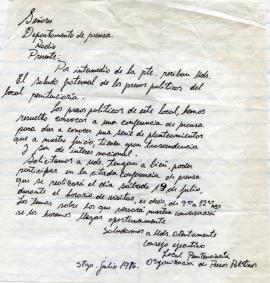 Señores
Departamento de prensa.
Radio
Presente:
Por intermedio de la pte. reciban Uds.
El saludo fraternal de los presos políticos del
local penitenciaría.
Los presos políticos de este local, hemos
resuelto convocar a una conferencia de prensa
para dar a conocer una serie de planteamientos
que a nuestro juicio, tienen gran trascendencia
y son de interes nacional.
Solicitamos a Uds. tengan a bien, poder
participar en la citada conferencia de prensa
que se realizará el día sábado 19 de Julio,
durante el horario de visitas, es decir, de 9 a 12
Los temas sobre los que versará nuestra conversación
se los haremos llegar oportunamente.
Saludamos a Uds. atentamente
Consejo ejecutivo
Local Penitenciaría
Organización de Presos Políticos
Stgo. Julio 1986.